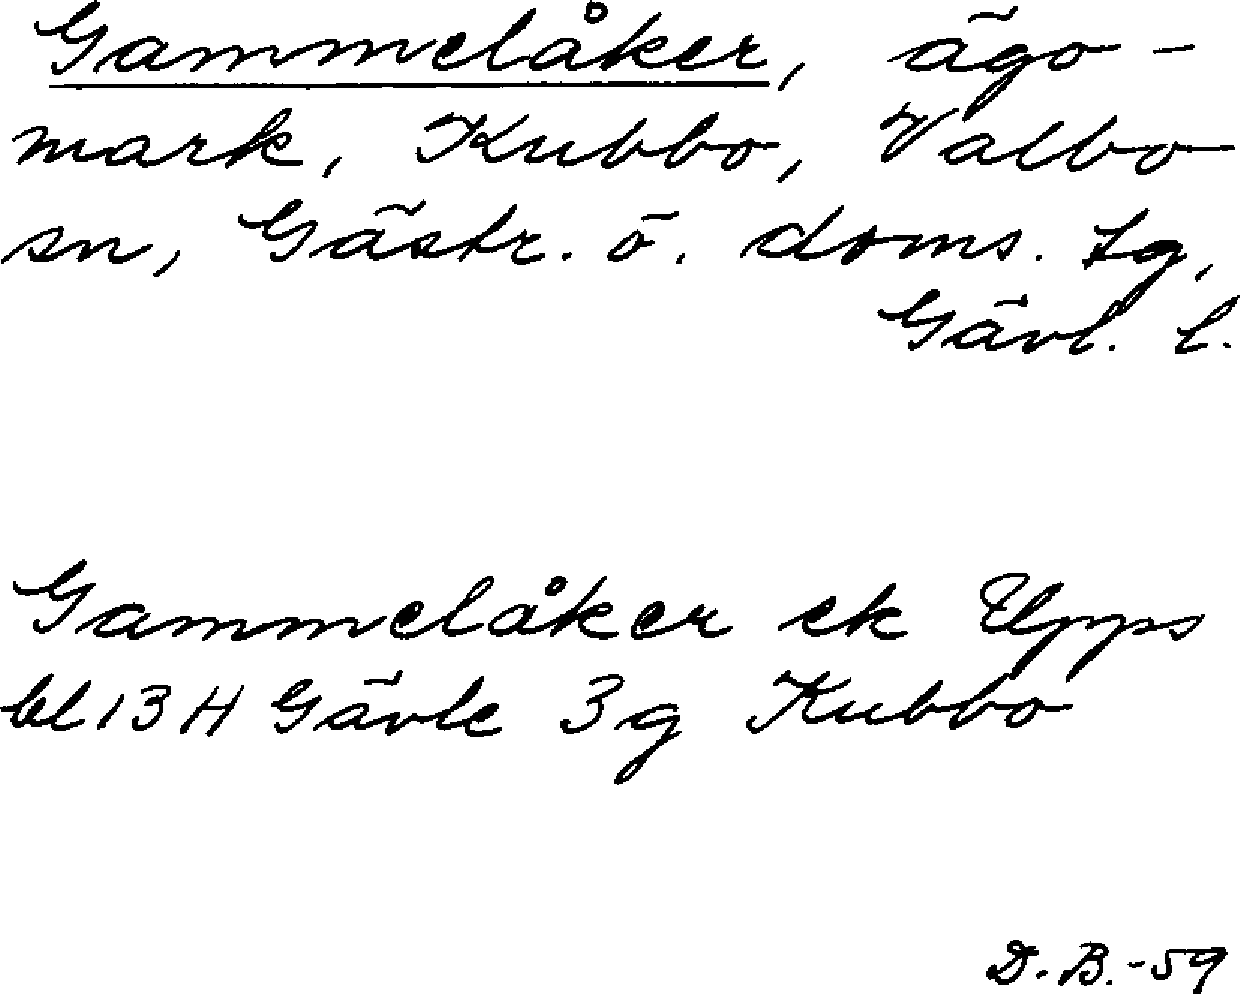 Gammelåker, ägo-
mark, Kubbo, Valbo
sn, Gästr. ö. doms. tg,
Gävl. l.
Gammelåker ek Upps
bl 13 H Gävle 3g Kubbo
D. B. -59